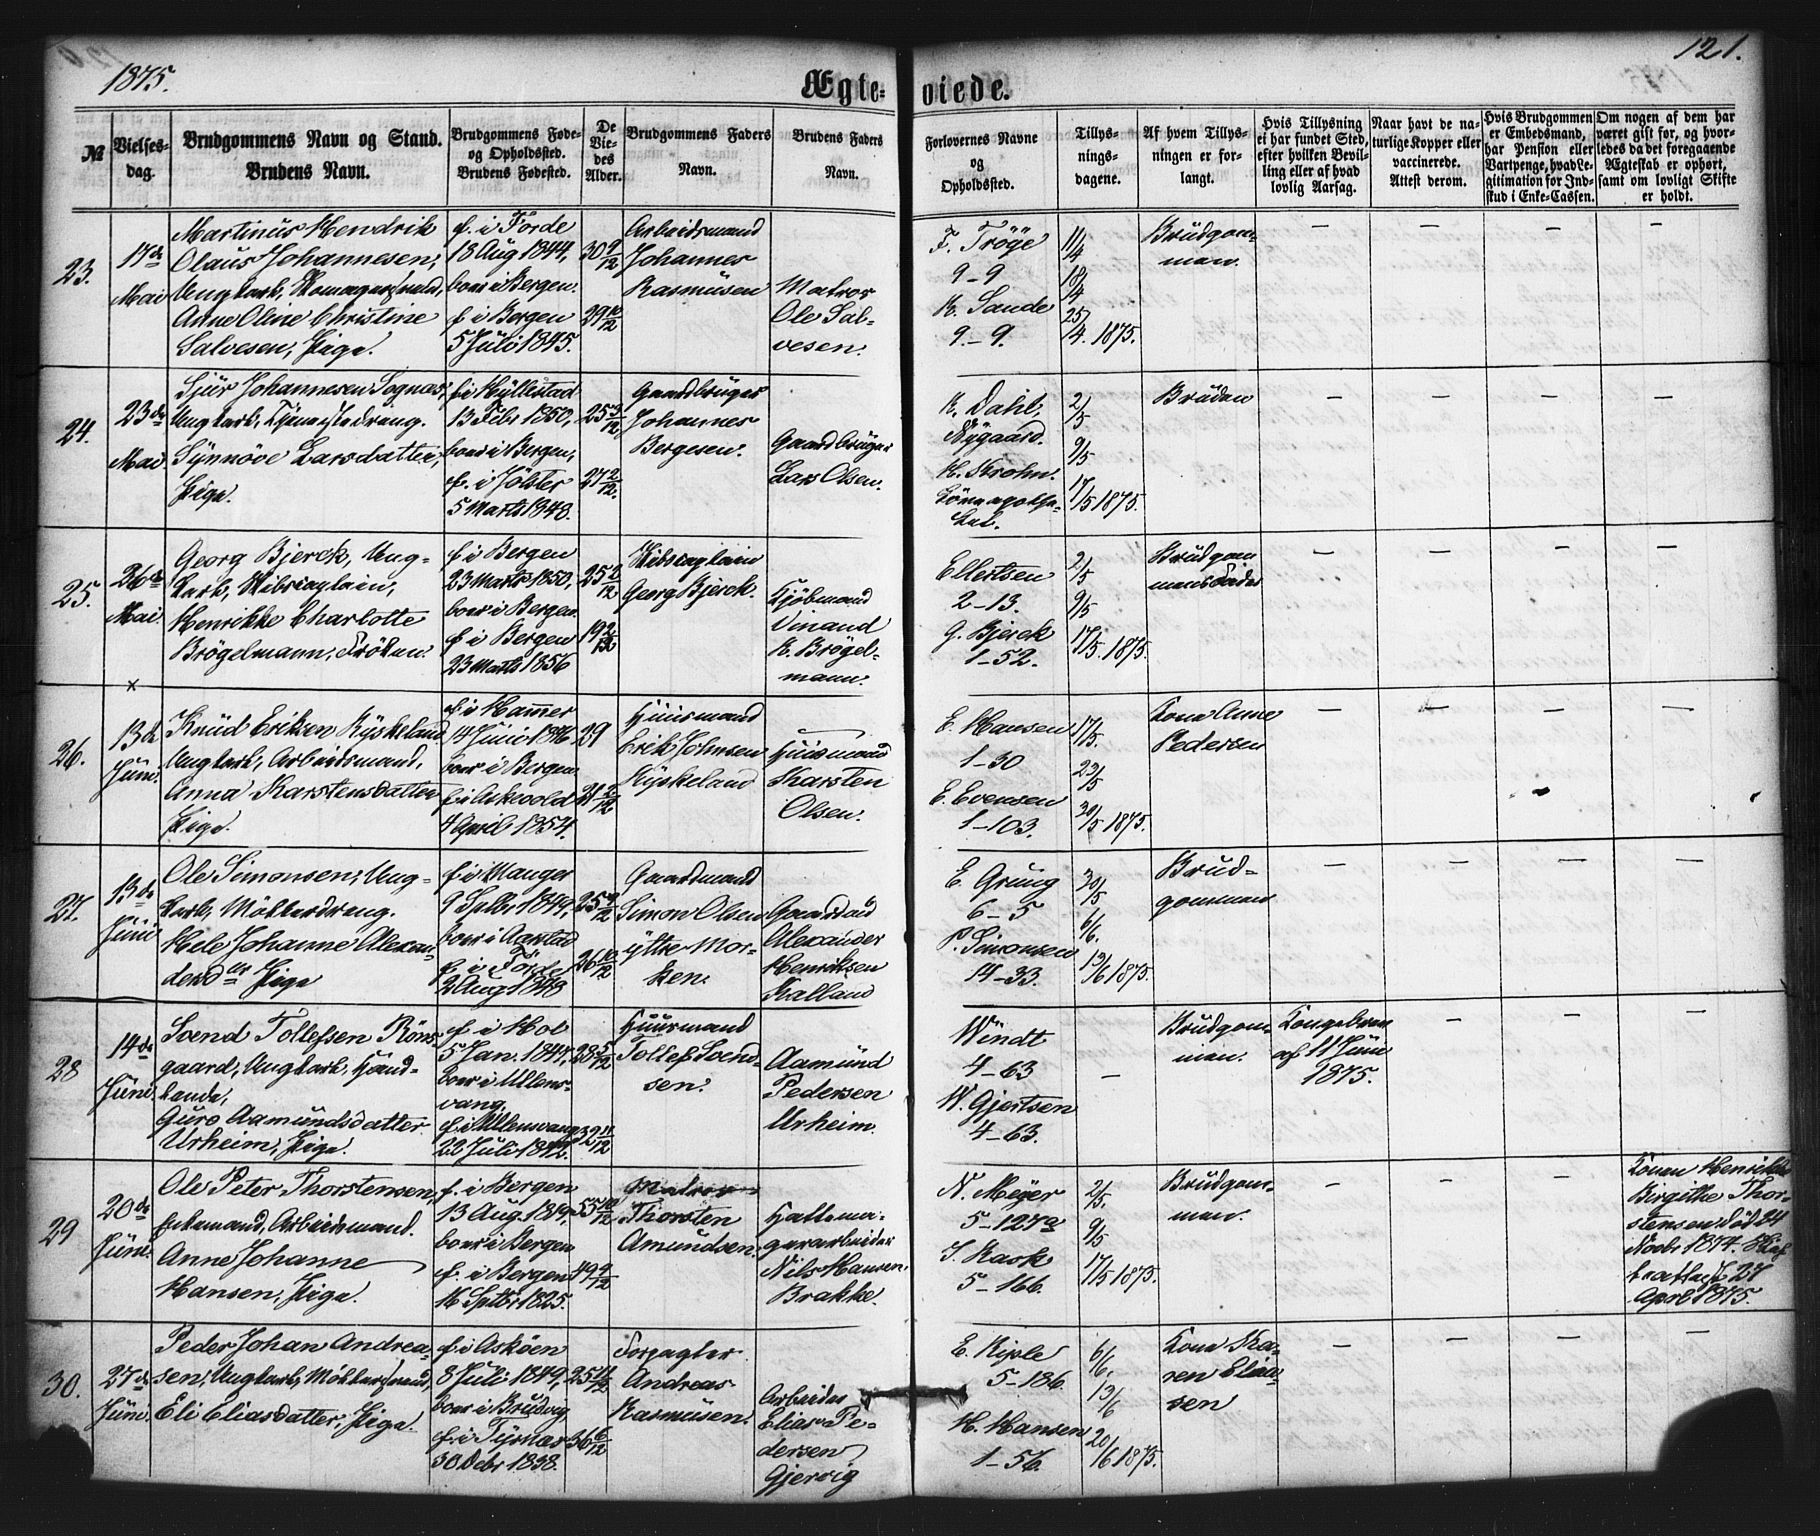 1875.
Ægte-
viede.
121.
№
Vielses-
dag.
Brudgommens Navn og Stand.
Brudens Navn.
Brudgommens Føde-
og Opholdssted.
Brudens Fødested.
De
Vie-
des
Alder.
Brudgommens Faders
Navn.
Brudens Faders
Navn.
Forlovernes Navne
og
Opholdssted.
Tillys-
nings-
dagene.
Af hvem Tillys-
ningen er for-
langt.
Hvis Tillysning
ei har fundet Sted,
efter hvilken Bevil-
ling eller af hvad
lovlig Aarsag.
Naar havt de na-
turlige Kopper eller
vaccinerede.
Attest derom.
Hvis Brudgommen
er Embedsmand,
har Pension eller
Vartpenge, hvad Le-
gitimation for Ind-
skud i Enke-Cassen.
Om nogen af dem har
været gift før, og hvor-
ledes da det foregaaende
Ægteskab er ophørt,
samt om lovligt Skifte
er holdt.
23.
17de
Mai
Martinus Hendrik
Olaus Johannesen,
Ungkarl, Skomagersvend,
Anne Oline Christine
Salvesen, Pige.
f. i Førde
18 Aug 1844,
boer i Bergen.
f. i Bergen
5 Juli 1845.
30 9/12
29 10/12
Arbeidsmand
Johannes
Rasmusen
Matros
Ole Sal-
vesen.
F. Tröye
9-9
K. Sande
9-9.
11/4
18/4
25/4. 1875.
Brudgom-
men.
24.
23de
Mai
Sjur Johannesen Sognas,
Ungkarl, Tjenestedreng.
Synnöve Larsdatter,
Pige.
f. i Hyllestad
13 Febr 1850,
boer i Bergen,
f. i Jölster
5 Marts 1848.
25 3/12
27 2/12.
Gaardbruger
Johannes
Bergesen.
Gaardbruger
Lars Olsen.
K. Dahl,
Nygaard.
H. Krohn.
Löveapothe-
ket.
2/5
9/5
17/5 1875.
Bruden
25.
26de
Mai.
Georg Bjerck, Ung-
karl, Skibscaptain,
Henrikke Charlotte
Brögelmann, Fröken.
f. i Bergen
23 Marts 1850,
boer i Bergen.
f. i Bergen
23 Marts 1856
25 2/12
19 2/12
Skibscaptain
Georg Bjerck.
Kjöbmand
Vinand
K. Brögel-
mann.
Ellertsen
2-13.
G. Bjerck
1-52.
2/5
9/5
17/5. 1875.
Brudgom
mens Fader
26.
13de
Juni.
Knud Eriksen Kyskeland
Ungkarl, Arbeidsmand,
Anna Karstensdatter,
Pige.
f. i Hammer
14 Juni 1846
boer i Bergen.
f. i Askevold
4 April 1854.
29
21 2/12
Huusmand
Erik Johnsen
Kyskeland
Huusmand
Karsten
Olsen.
E. Hansen
1-30
E. Evensen
1-103.
17/5.
23/5
30/5 1875.
Kone Anne
Pedersen
27.
13de
Juni
Ole Simonsen, Ung-
karl, Möllerdreng.
Hele Johanne Alexan-
dersdtr Pige
f. i Manger
9 Sptbr 1849,
boer i Aarstad
f. i Förde
2 Aug 1848
25 9/12
26 10/12
Gaardmand
Simon Olsen
ytre Mor-
ken.
Gaardmand
Alexander
Henriksen
Kalland
E. Grung
6-5
P. Simonsen
14-33.
30/5
6/6.
13/6 1875.
Brud-
gommen
28
14de
Juni.
Svend Tollefsen Röns-
gaard, Ungkarl, Hand-
lende,
Guro Aamundsdatter
Urheim, Pige.
f. i Hol
5 Jan. 1847,
boer i Ullens-
vang.
f. i Ullensvang
22 Juli 1842.
28 5/12
32 11/12
Huusmand
Tollef Svend-
sen.
Aamund
Pedersen
Urheim.
Wendt
4-63
W. Gjertsen
4-63.
Brudgom-
men.
Kongebrev
af 11 Juni
1875.
29
20de
Juni.
Ole Peter Thorstensen,
Enkemand, Arbeidsmand.
Anne Johanne
Hansen, Pige.
f. i Bergen
13 Aug. 1819,
boer i Bergen
f. i Bergen
16 Sptbr. 1825.
55 10/12
49 9/12
Matros
Thorsten
Amundsen.
Hattema-
gerarbeider
Nils Hansen
Brakke.
N. Meyer
5-127a
J. Rask
5-166.
2/5.
9/5
17/5 1875.
Brudgom-
men.
Konen Henrikke
Birgithe Thor-
stensen død 24
Novbr 1874. Skif-
teattest 27
April 1875.
30.
27de
Juni.
Peder Johan Andrea-
sen, Ungkarl, Möllersvend,
Eli Eliasdatter, Pige.
f. i Asköen
8 Juli 1849,
boer i Brudvig
f. i Tysnæs
30 Decbr 1838.
25 11/12
36 6/12
Forpagter
Andreas
Rasmusen.
Arbeider
Elias Pe-
dersen
Gjervig
E. Riple
5-186.
H. Hansen
1-56.
6/6.
13/6
20/6 1875.
Kone Ka-
ren Elia-
sen